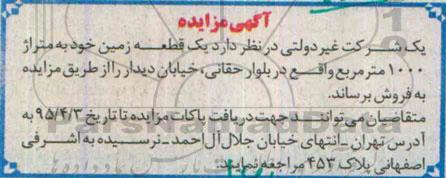 آگهی مزایده
یک شرکت غیر دولتی در نظر دارد یک قطعه زمین خود به متراژ
۱۰۰۰ متر مربع واقع در بلوار حقانی، خیابان دیدار را از طریق مزایده
به فروش برساند.
متقاضیان می‌توانند جهت دریافت پاکات مزایده تا تاریخ ۹۵/۴/۳ به
آدرس تهران ـ انتهای خیابان جلال آل احمد ـ نرسیده به اشرفی
اصفهانی پلاک ۴۵۳ مراجعه نمایند.